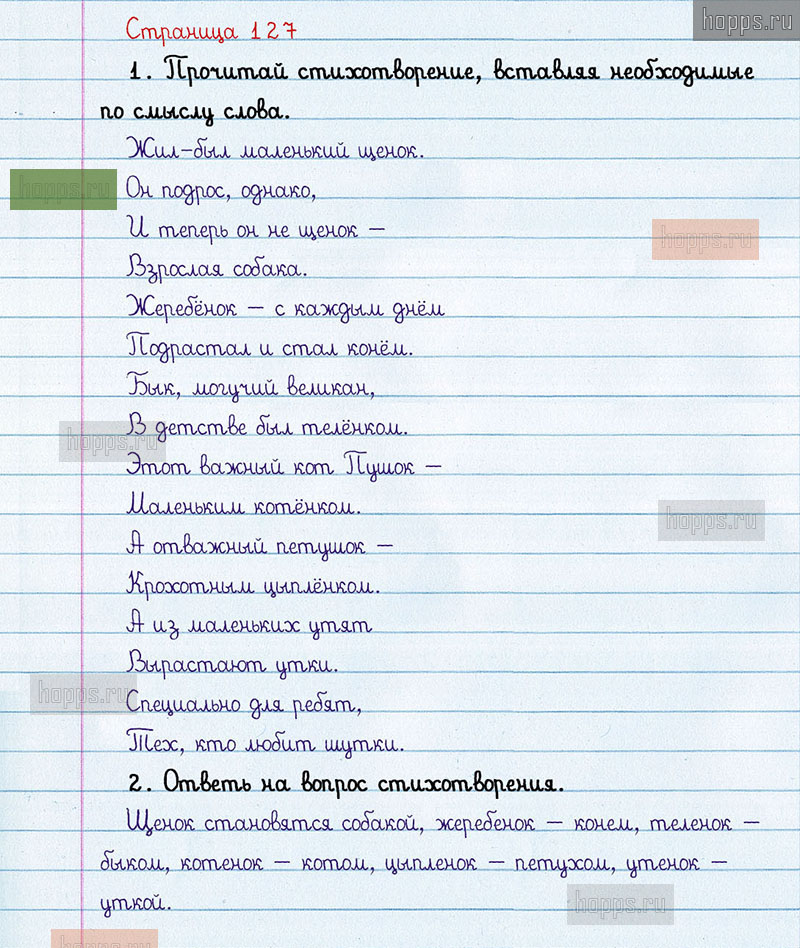 hopps.ru
Страница 127
1. Прочитай стихотворение, вставляя необходимые
по смыслу слова.
Жил-был маленький щенок.
hopps.ru
Он подрос, однако,
И теперь он не щенок –
hopps.ru
Взрослая собака.
Жеребёнок – с каждым днём
Подрастал и стал конём.
Бык, могучий великан,
В детстве был телёнком.
hopps.ru
Этот важный кот Пушок –
Маленьким котёнком.
hopps.ru
А отважный петушок –
Крохотным цыплёнком.
А из маленьких утят
Вырастают утки.
hopps.ru
Специально для ребят,
Тех, кто любит шутки.
2. Ответь на вопрос стихотворения.
Щенок становятся собакой, жеребенок – конем, теленок –
быком, котенок – котом, цыпленок – петухом, утенок –
уткой.
hopps.ru
hopps.ru